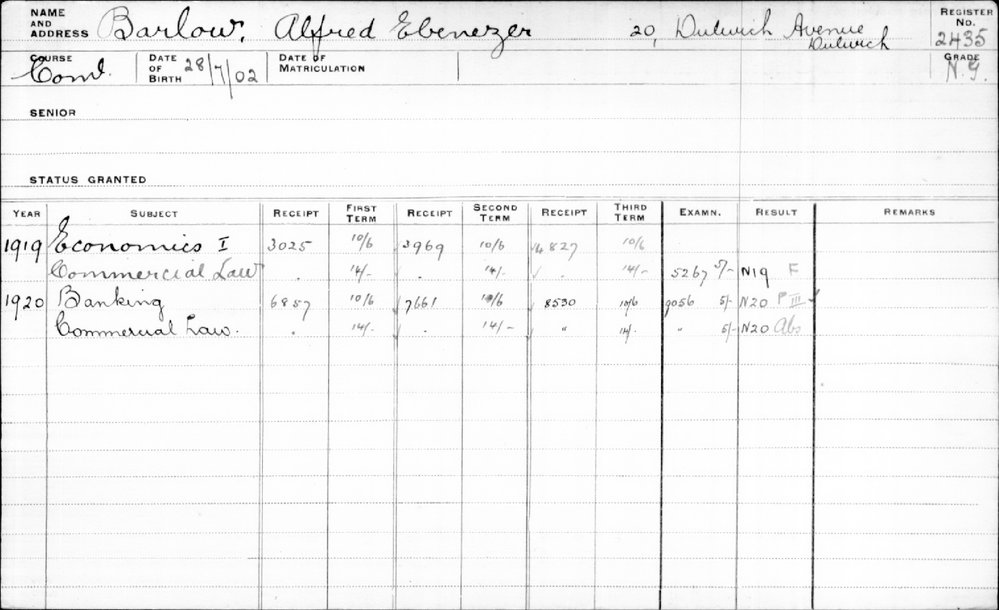 NAME AND ADDRESS Barlow, Alfred Ebenezer 20, Dulwich Avenue Dulwich REGISTER No. 2435
COURSE Coml. DATE OF BIRTH 28/7/02 DATE OF MATRICULATION GRADE N.G.
SENIOR
STATUS GRANTED
YEAR SUBJECT RECEIPT FIRST TERM RECEIPT SECOND TERM RECEIPT THIRD TERM EXAMN. RESULT REMARKS
1919 Economics I 3025 10/6 3969 10/6 4827 10/6
Commercial Law . 14/- . 14/- . 14/- 5267 5/- N19 F
1920 Banking 6857 10/6 7661 10/6 8530 10/6 9056 5/- N20 P III
Commercial Law. . 14/- . 14/- " 14/- " 5/- N20 Abs